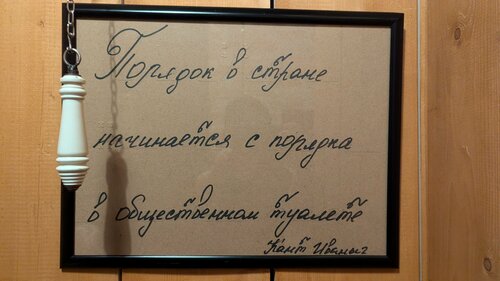 Порядок в стране
начинается с порядка
в общественном туалете
Кант Иваныч